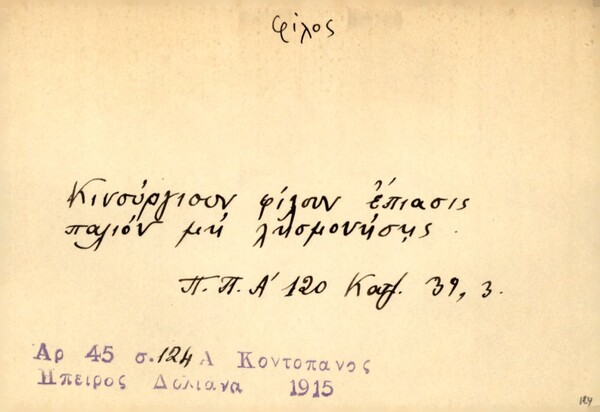 φίλος
Κινούργισουν φίλουν ἔπιασις
παλιόν μή λησμονήσῃς.
Π.Π.Α' 120 Καταλ. 39, 3.
Αρ 45 σ. 124 Α Κοντοπανος
Ηπειρος Δολιανα 1915
124